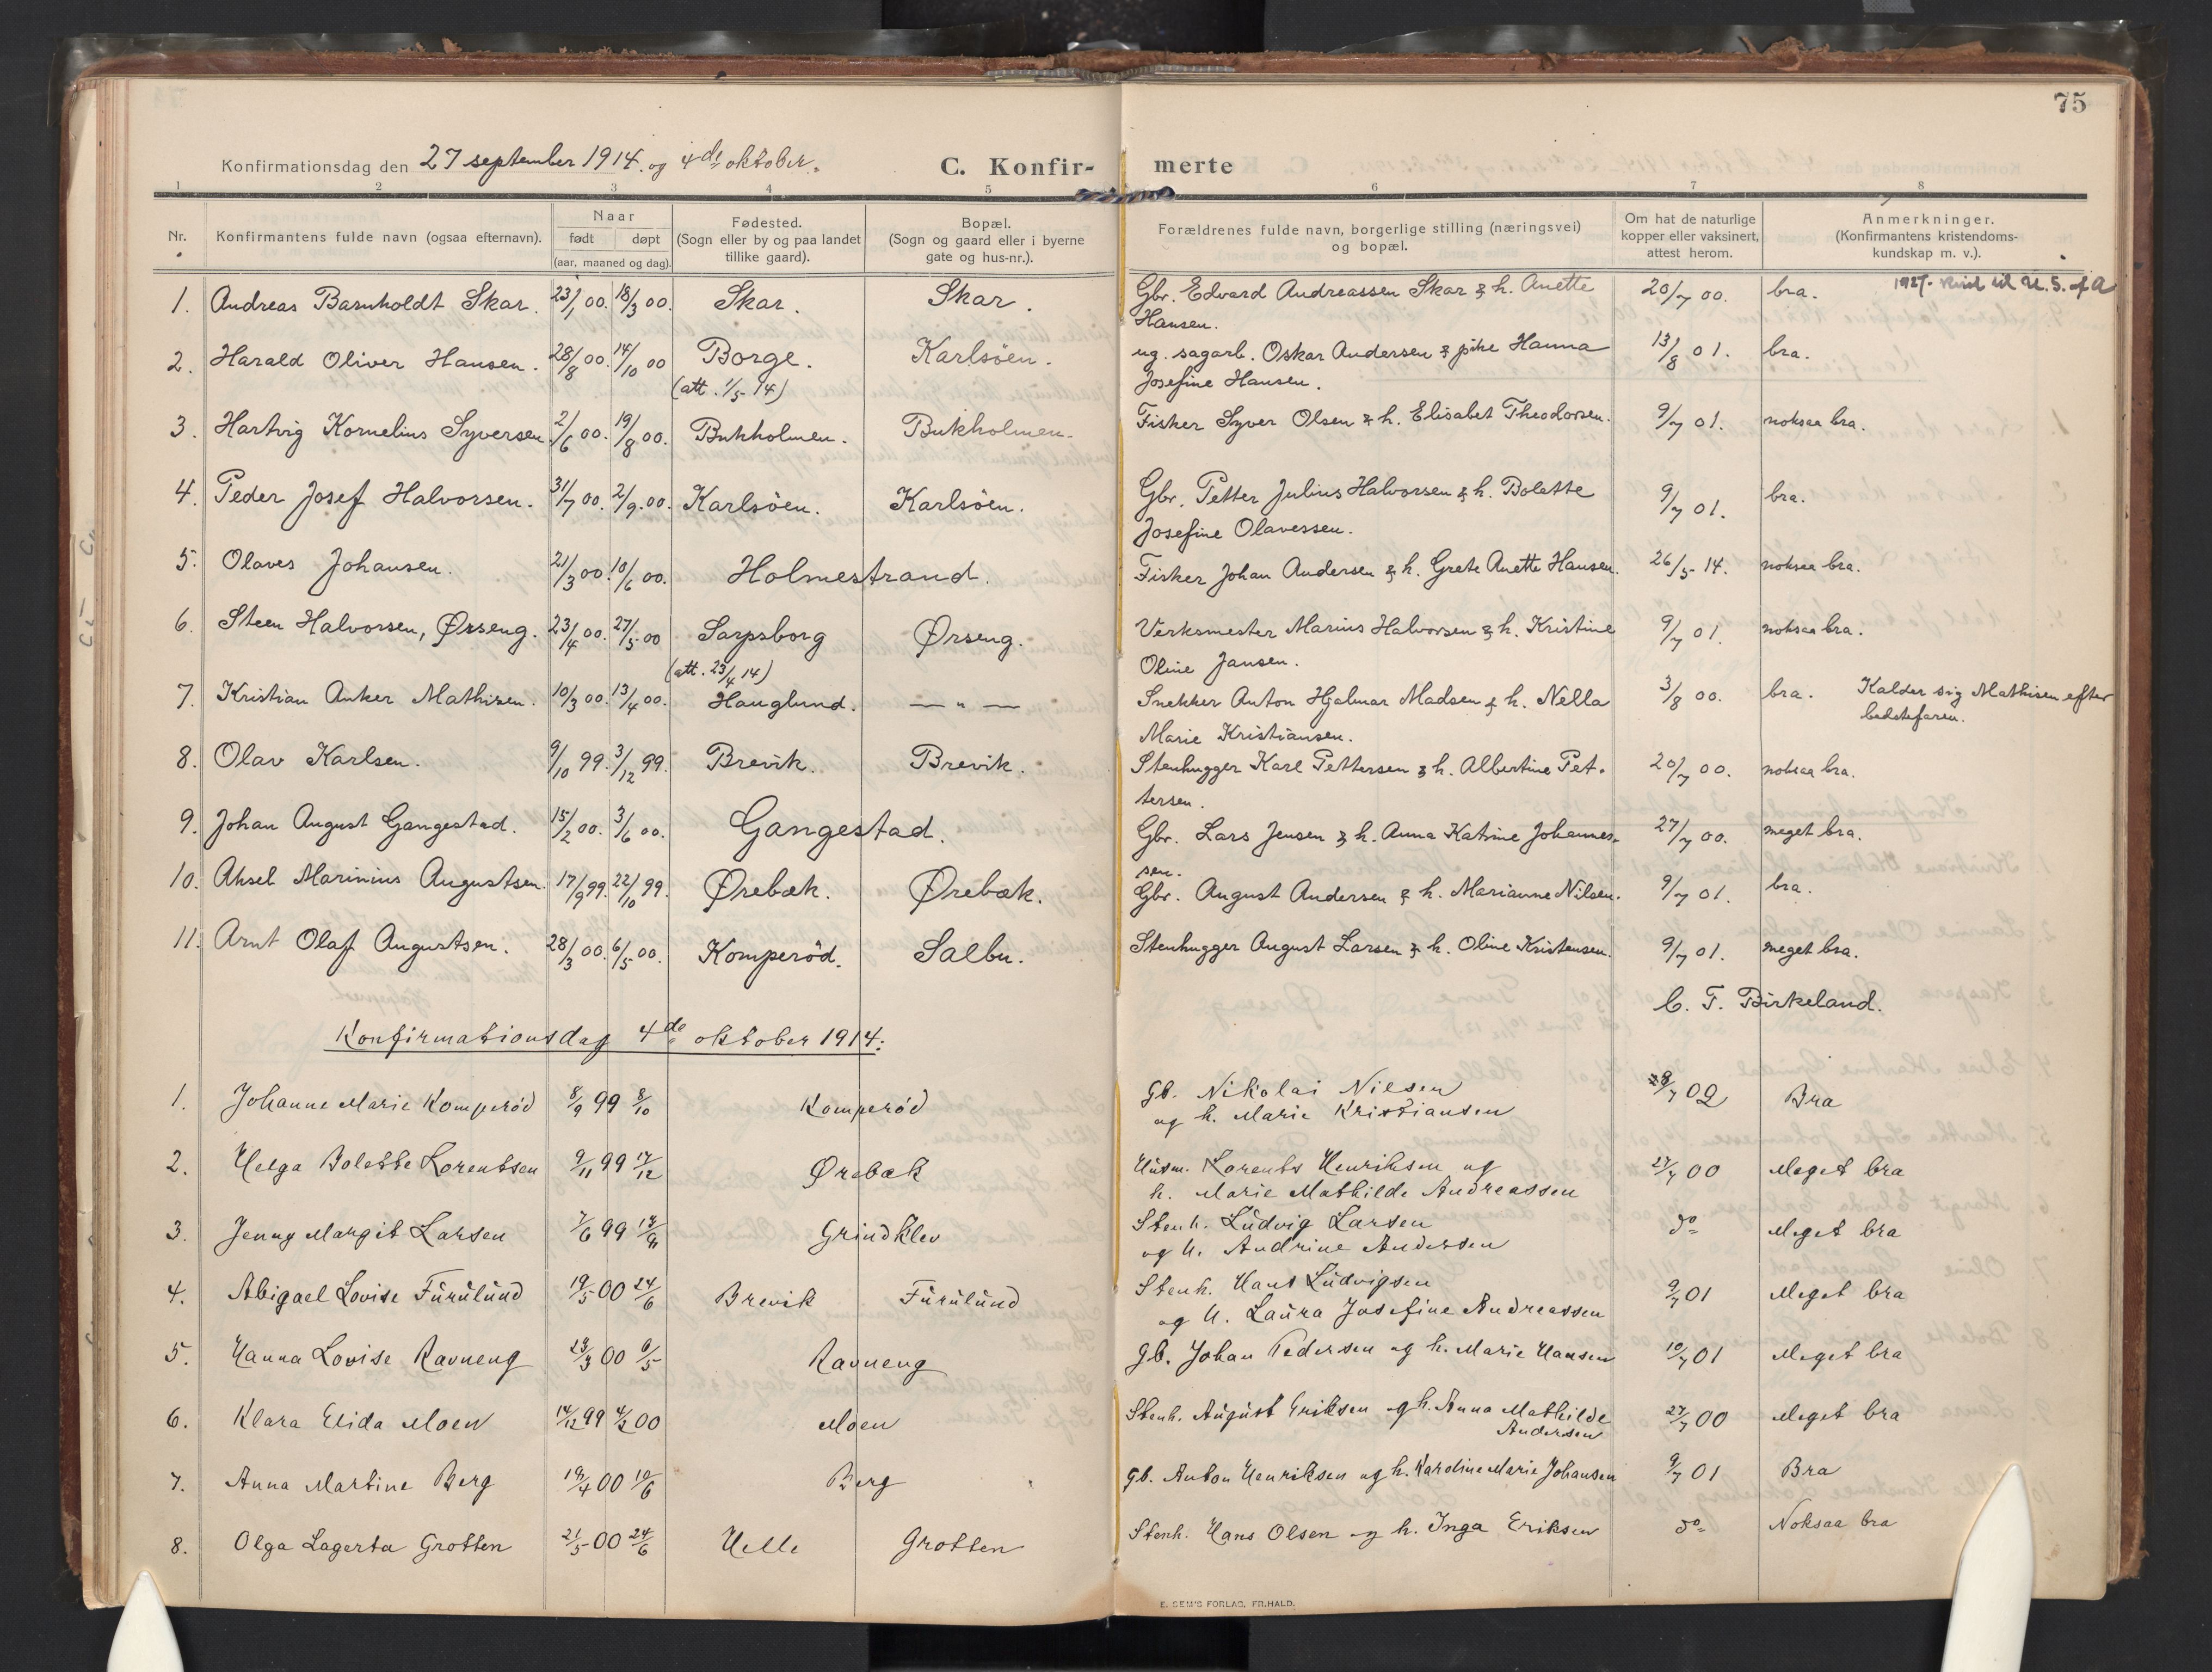 75
Konfirmationsdag den 27 september 1914. og 4de oktober.
C. Konfir- merte
1 2 3 4 5 6 7 8
Nr. Konfirmantens fulde navn (ogsaa efternavn). Naar født døpt (aar, maaned og dag). Fødested. (Sogn eller by og paa landet tillike gaard). Bopæl. (Sogn og gaard eller i byerne gate og hus-nr.). Forældrenes fulde navn, borgerlige stilling (næringsvei) og bopæl. Om hat de naturlige kopper eller vaksinert, attest herom. Anmerkninger. (Konfirmantens kristendoms- kundskap m. v.).
1. Andreas Barnholdt Skar. 23/1 00. 18/3 00. Skar. Skar. Gbr. Edvard Andreassen Skar & h. Anette 20/7 00. bra. 1927. til U.S. of A
Hansen.
2. Harald Oliver Hansen. 28/8 00. 14/10 00 Borge. Karlsöen. ug. sagarb. Oskar Andersen & pike Hanna 13/8 01. bra.
(att. 1/5 14) Josefine Hansen.
3. Hartvig Kornelius Syversen 2/6 00. 19/8 00. Bukholmen. Bukholmen. Fisker Syver Olsen & h. Elisabet Theodorsen. 9/7 01. noksaa bra.
4. Peder Josef Halvorsen. 31/7 00. 2/9. 00. Karlsöen. Karlsöen. Gbr. Petter Julius Halvorsen & h. Bolette 9/7 01. bra.
Josefine Olavessen.
5. Olaves Johansen. 21/3 00. 10/6 00. Holmestrand. Fisker Johan Andersen & h. Grete Anette Hansen. 26/5 14. noksaa bra.
6. Steen Halvorsen, Ørseng. 23/4 00. 27/5 00 Sarpsborg Ørseng. Verksmester Marius Halvorsen & h. Kristine 9/7 01. noksaa bra.
(att. 23/4 14) Oline Jansen.
7. Kristian Anker Mathisen. 10/3 00. 13/4 00. Hauglund. — „ — Snekker Anton Hjalmar Madsen & h. Nella 3/8 00. bra. Kalder sig Mathisen efter
Marie Kristiansen. bedstefaren.
8. Olav Karlsen. 9/10 99. 3/12 99. Brevik. Brevik. Stenhugger Karl Pettersen & h. Albertine Pet- 20/7 00. noksaa bra.
tersen.
9. Johan August Gangestad. 15/2 00. 3/6 00. Gangestad. Gbr. Lars Jensen & h. Anna Katrine Johannes- 27/7 00. meget bra.
sen.
10. Aksel Marinius Augustsen. 17/9 99. 22/10 99. Ørebæk. Ørebæk. Gbr. August Andersen & h. Marianne Nilsen. 9/7 01. bra.
11. Arnt Olaf Augustsen. 28/3 00. 6/5 00. Komperöd. Salbu. Stenhugger August Larsen & h. Oline Kristensen. 9/7 01. meget bra.
C. T. Birkeland.
Konfirmationsdag 4de oktober 1914:
1. Johanne Marie Komperöd 8/9 99 8/10 Komperöd Gb. Nikolai Nilsen 02 Bra
og h. Marie Kristiansen
2. Helga Bolette Lorentsen 9/11 99 17/12 Ørebæk Husm. Lorents Henriksen og 27/7 00 Meget bra
h. Marie Mathilde Andreassen
3. Jenny Margit Larsen 7/6 99 Grindklev Stenh. Ludvig Larsen do Meget bra
og h. Andrine Andersen
4. Abigael Lovise Furulund 19/5 00 24/6 Brevik Furulund Stenh. Hans Ludvigsen 9/7 01 Meget bra
og h. Laura Josefine Andreassen
5. Hanna Lovise Ravneng 23/3 00 6/5 Ravneng Gb. Johan Pedersen og h. Marie Hansen 10/7 01 Meget bra
6. Klara Elida Moen 14/12 99 4/2 00 Moen Stenh. August Eriksen og h. Anna Mathilde 27/7 00 Meget bra
Andersen
7. Anna Martine Berg 19/4 00 10/6 Berg Gb. Anton Henriksen og h. Karoline Marie Johansen 9/7 01 Bra
8. Olga Lagerta Grotten 21/5 00 24/6 Helle Grotten Stenh. Hans Olsen og h. Inga Eriksen do Noksaa bra
E. SEM'S FORLAG, FR.HALD.